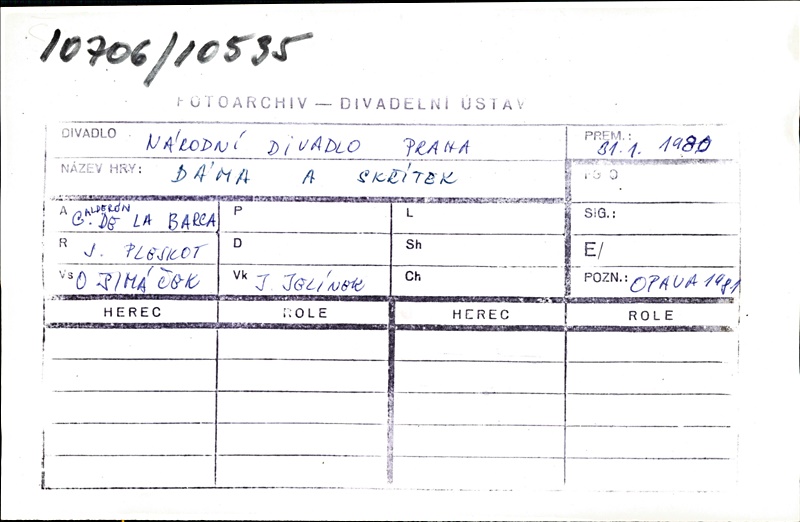 10706/10535
FOTOARCHIV — DIVADELNÍ ÚSTAV
DIVADLO NÁRODNÍ DIVADLO PRAHA
PREM.: 31.1. 1980
NÁZEV HRY: DÁMA A SKŘÍTEK
A CALDERÓN
DE LA BARCA
P
L
SIG.:
R J. PLESKOT
D
Sh
E/
Vs O ŠIMÁČEK
Vk J. JELÍNEK
Ch
POZN.: OPAVA 1981
HEREC ROLE HEREC ROLE